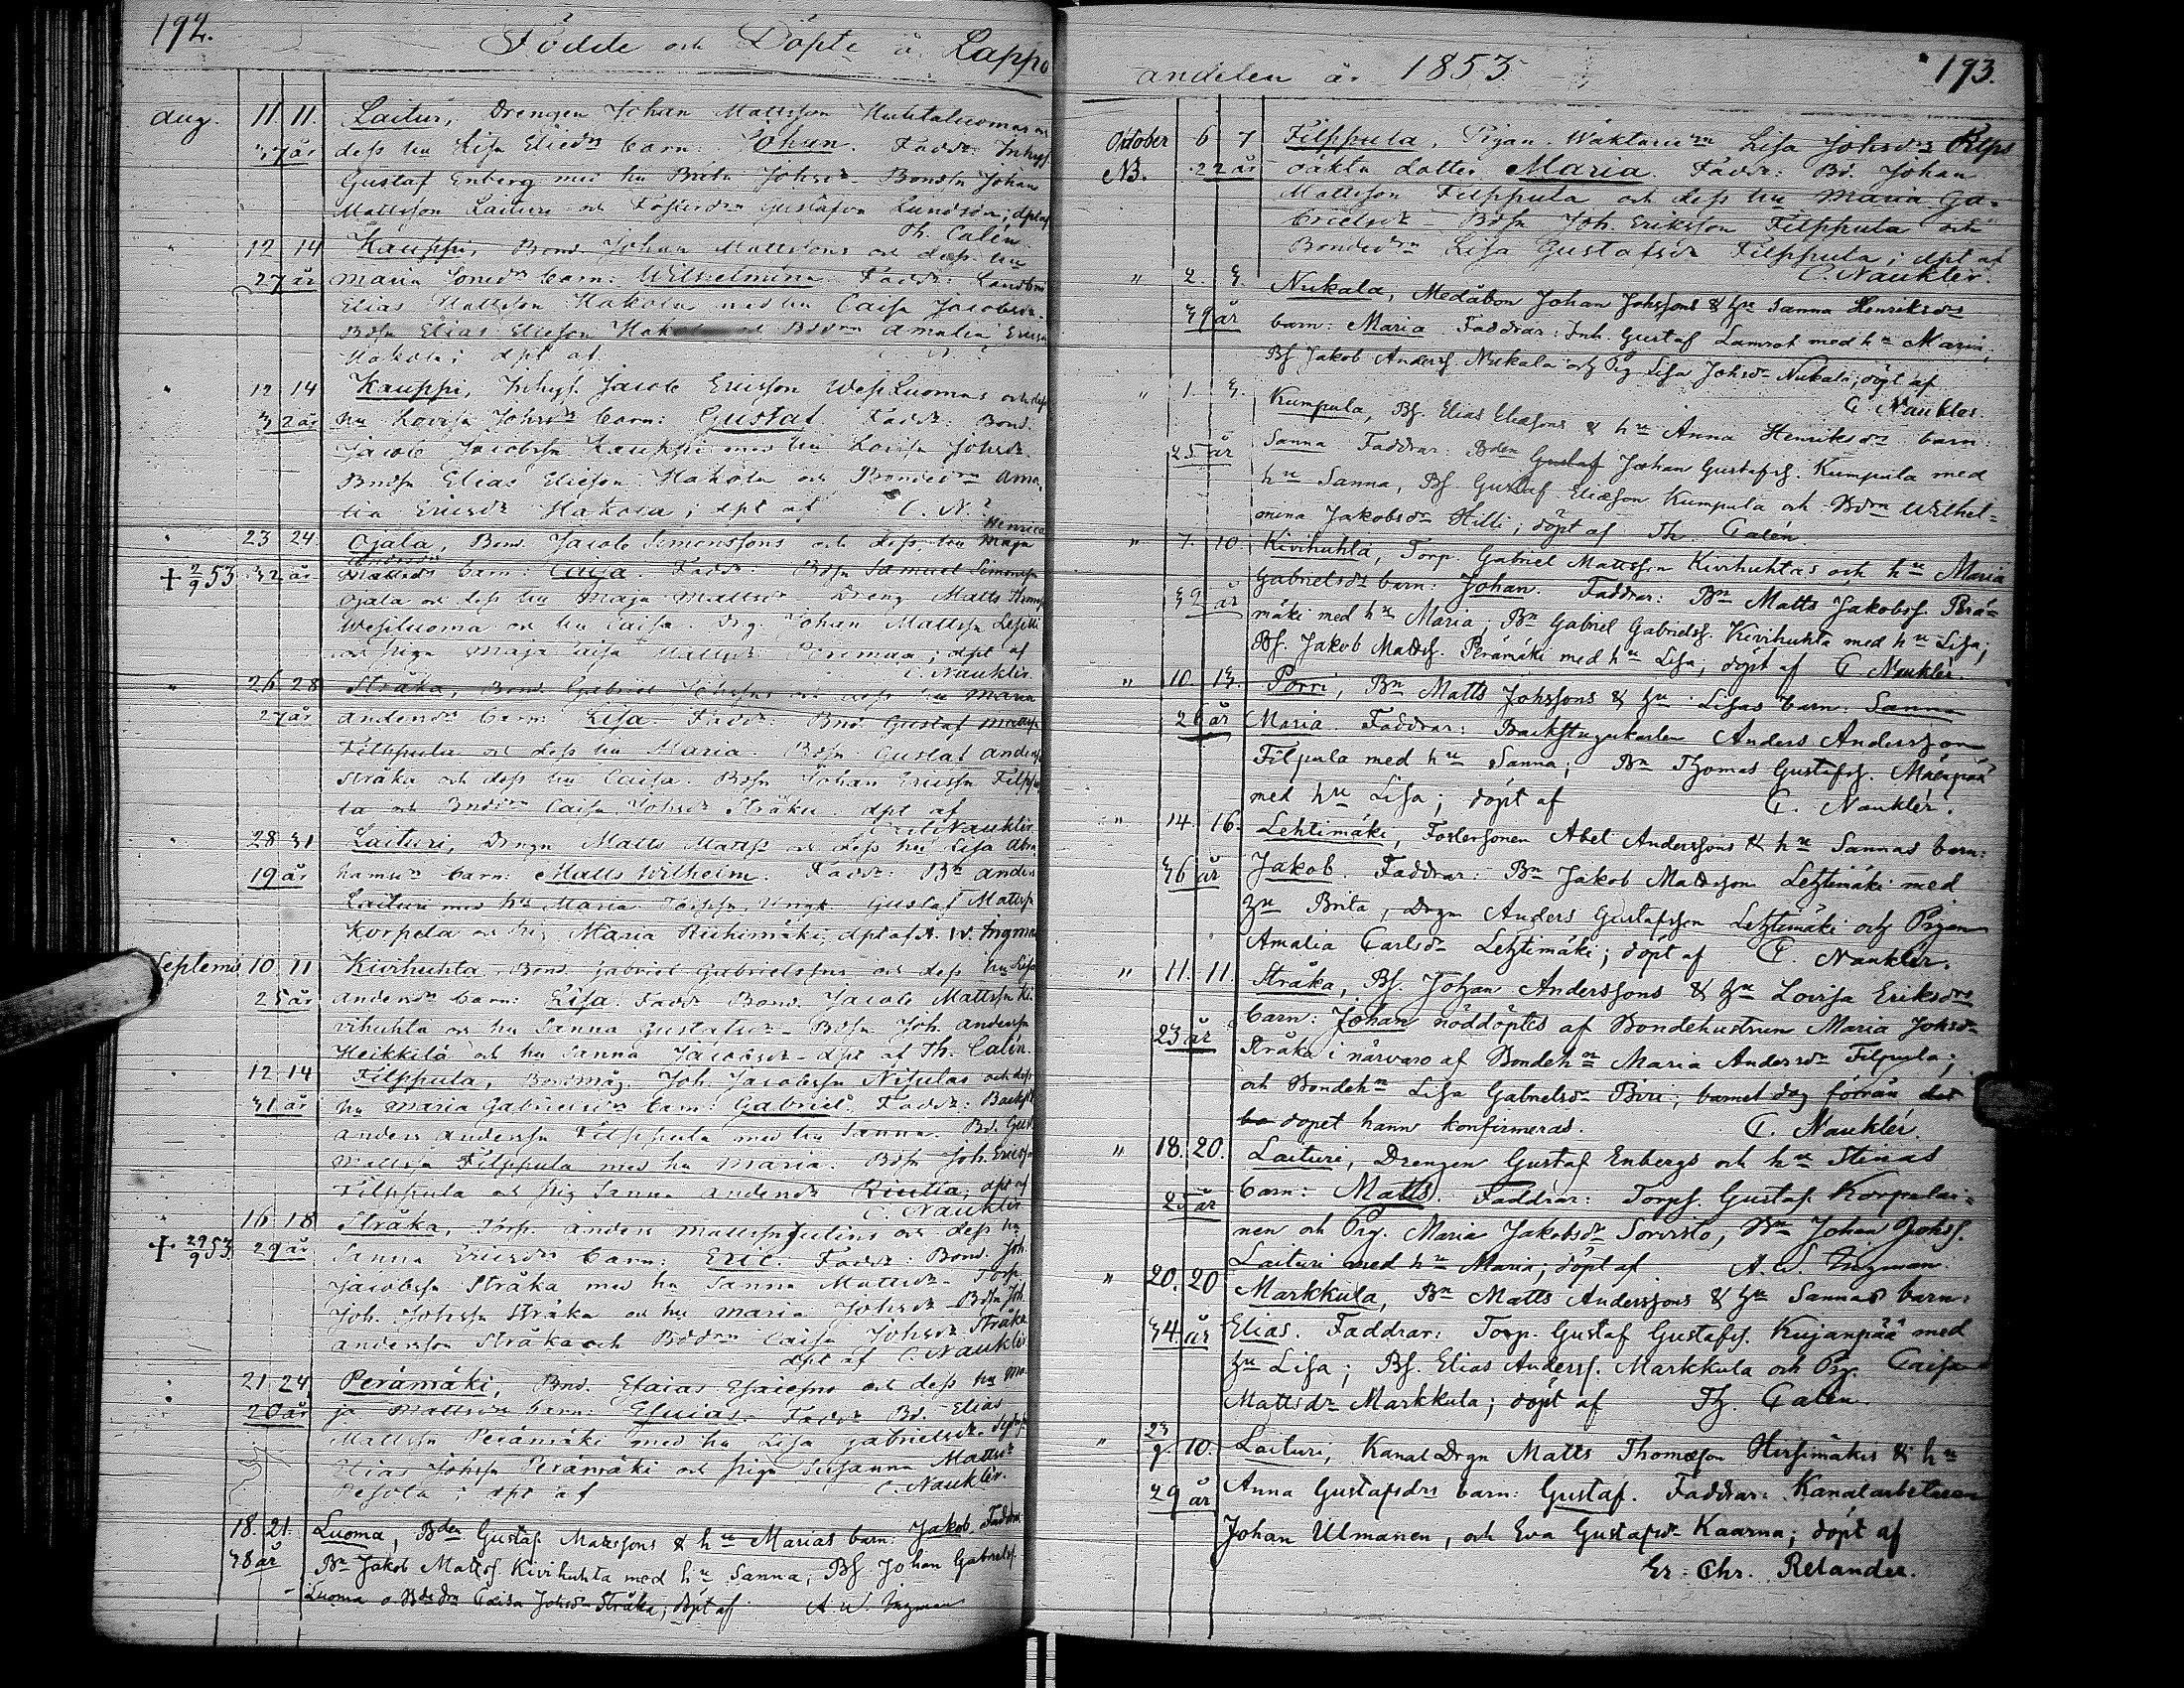 192.
Födde och Döpte å Lappo
aug. 11 11. Laituri, Drengen Johan Mattsson Huhtaluomas och
37 år dess hu Lisa Eliædrs barn: Johan. Faddr: Inhys.
Gustaf Enberg med hu Brita Johsdr. Bondsn Johan
Mattsson Laituri och Fosterdrn Gustafva Lundsön; dpt af
Th. Calén.
" 12 14 Kauppi, Bond. Johan Mattssons och dess hu
27 år Maria Jonædrs barn: Wilhelmina. Faddr:
Elias Mattsson Hakola med hu Caisa Jacobsdr.
Bdsn Elias Eliæson Hakola och Bddrn Amalia Ericsdr
Hakola; dpt af C. N.?
" 12 14 Kauppi, Inhys. Jacob Ericsson WesiLuomas och dess
32 år hu Lovisa Johsdrs barn: Gustaf. Faddr: Bond.
Jacob Jacobsson Kauppi med hu Lovisa Johsdr.
Bndsn Elias Eliæson Hakola och Bondedrn Ama,
lia Ericsdr Hakola; dpt af C. N.?
Henrica
" 23 24 Ojala, Bond. Jacob Simonssons och dess hu Maja
+ 2/9 53 32 år Mattsdrs barn: Caisa. Faddr: Bdsn Samuel Simonsn
Ojala och dess hu Maja Mattsdr. Dreng Matts
Wesiluoma och hu Caisa. Drg. Johan Mattsson
och piga Maja Caisa Mattsdr; dpt af
C. Nauklér
" 26 28 Stråka, Bond. Gabriel Johssons och dess hu Maria
27 år Andersdrs barn: Lisa. Faddr: Bnd. Gustaf Mattsn
Filppula och dess hu Maria. Bdsn Gustaf Andersn
Stråka och dess hu Caisa. Bdsn Johan Ericsson Filppu
la och Bnddrn Caisa Johsdr Stråka. dpt af
C. Nauklér
" 28 31 Laituri, Drngn Matts Mattss och dess hu Lisa Abra
19 år hamsdrs barn: Matts Wilhelm. Faddr: Bn Anders
Laituri med hu Maria Ungk. Gustaf Mattsn
Korpela och Pig Maria Riihimäki, dpt af A. W. Ingman
Septemb 10 11 Kivihuhta, Bond. Gabriel Gabrielssons och dess hu Lisa
25 år Andersdrs barn: Lisa. Faddr Bond. Jacob Mattsson Ki,
vihuhta och hu Sanna Gustafsdr. Bdsn Joh. Andersn
Heikkilä och hu Sanna Jacobsdr. dpt af Th. Calén.
" 12 14 Filppula, Bondmåg. Joh. Jacobssn Nisulas och dess
31 år hu Maria Gabrielsdrs barn: Gabriel. Faddr: Backst.
Anders Anderssn Filppula med hu Sanna. Bd. Gust.
Mattsn Filppula med hu Maria. Bdsn Joh. Ericsn
Filppula och pig Sanna Andersdr Rintta; dpt af
C. Nauklér
" 16 18 Stråka, Torp. Anders Mattsson Julins och dess hu
+ 29/9 53. 29 år Sanna Ericsdrs barn: Eric. Faddr: Bond. Joh.
Jacobssn Stråka med hu Sanna Mattsdr. Torp.
Joh. Johssn Stråka och hu Maria Johsdr. Bdsn Joh.
Andersson Stråka och Bddrn Caisa Johsdr Stråka
dpt af C. Nauklér.
" 21 24 Perämäki, Bnd. Esaias Esaiesons och dess hu Ma
20 år ja Mattsdrs barn: Esaias. Faddr Bd. Elias
Mattsn Perämäki med hu Lisa Gabrielsdr.
Elias Johssn Perämäki och piga Susanna Mattsdr
Pesola; dpt af C. Nauklér.
18. 21. Luoma, Bden Gustaf Matssons & hu Marias barn: Jakob. Faddrar
38 år Bn Jakob Matts. Kivihuhta med hu Sanna, Bs. Johan Gabrielss.
Luoma o Bdedrn Caisa Johsdr Stråka; döpt af A. W. Ingman

193.
andelen år 1853
Oktober 6 7 Filppula, Pigan Lisa Johsdrs
NB. 22 år oäkta dotter Maria. Faddr: Bd. Johan
Mattsson Filppula och dess hu Maria Ga-
brielsdr – Bdsn Joh. Eriksson Filppula och
Bondedrn Lisa Gustafsdr Filppula; dpt af
C. Nauklér.
" 2. 3. Nukala, Medåbon Johan Johssons & hu Sanna Henriksdrs
39 år barn: Maria. Faddrar: Inh. Gustaf Lamrot med hu Maria,
Bs Jakob Anderss. Nukala och Pig Lisa Johsdr Nukala; döpt af
C. Nauklér.
" 1. 3. Kumpula, Bs. Elias Eliæsons & hu Anna Henriksdrs barn:
25 år Sanna Faddrar: Bden Gustaf Johan Gustafss. Kumpula med
hu Sanna, Bs. Gustaf Eliæson Kumpula och Bdrn Wilhel=
mina Jakobsdr Hilli; döpt af Th. Calén.
" 7. 10. Kivihuhta, Torp. Gabriel Mattsson Kivihuhtas och hu Maria
32 år Gabrielsdrs barn: Johan. Faddrar: Bn Matts Jakobss. Perä=
mäki med hu Maria; Bn Gabriel Gabrielss. Kivihuhta med hu Lisa;
Bs. Jakob Mattss. Perämäki med hu Lisa, döpt af C. Nauklér.
" 10. 13. Porri, Bn Matts Johssons & hu Lisas barn: Sanna
26 år Maria. Faddrar: Backstugukarlen Anders Andersson
Filpula med hu Sanna; Bn Thomas Gustafss. Mäenpää
med hu Lisa; döpt af C. Nauklér.
" 14. 16. Lehtimäki, Fostersonen Abel Anderssons & hu Sannas barn:
36 år Jakob. Faddrar: Bn Jakob Mattsson Lehtimäki med
hu Brita, Drgn Anders Gustafsson Lehtimäki och Pigan
Amalia Carlsdr Lehtimäki; döpt af C. Nauklér.
" 11. 11. Stråka, Bs. Johan Anderssons & hu Lovisa Eriksdrs
23 år barn: Johan nöddöptes af Bondehustrun Maria Johsdr
Stråka i närvaro af Bondehn Maria Andersdr Filpula;
och Bondehn Lisa Gabrielsdr Biri; barnet dog förrän det
ba dopet hann konfirmeras. C. Nauklér.
" 18. 20. Laituri, Drengen Gustaf Enbergs och hu Stinas
25 år barn: Matts. Faddrar: Torps. Gustaf Korpelai=
nen och Pig. Maria Jakobsdr Sorvisto, Bn Johan Johss.
Laituri med hu Maria; döpt af A. W. Ingman.
" 20. 20 Markkula, Bn Matts Anderssons & hu Sannas barn:
34 år Elias. Faddrar: Torp. Gustaf Gustafss. Kujanpää med
hu Lisa; Bs. Elias Anderss. Markkula och Pig. Caisa
Mattsdr Markkula; döpt af Th. Calén.
" 23/9 10. Laituri, Kanal Drgn Matts Thomæson Hirsimäkis & hu
29 år Anna Gustafsdrs barn: Gustaf. Faddrar: Kanalarbetaren
Johan Ulmanen, och Eva Gustafsdr Kaarna; döpt af
Er. Chr. Relander.